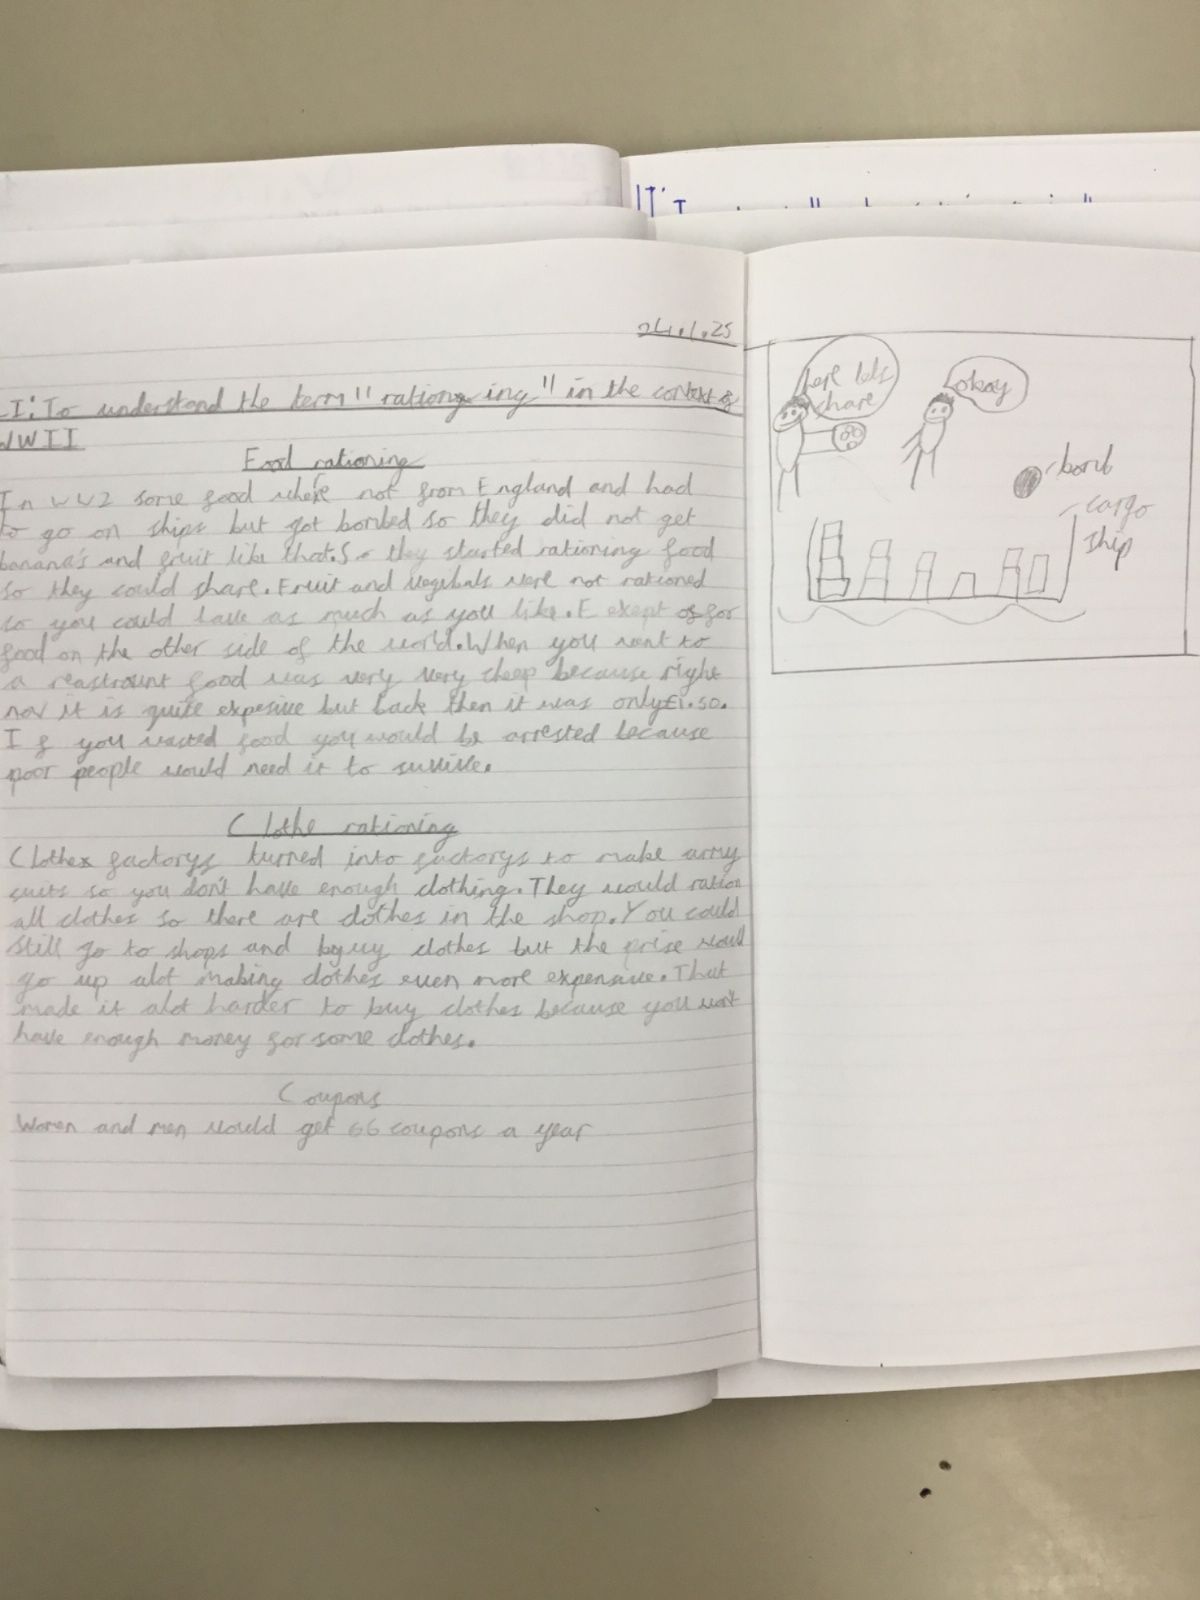 24.1.25
LI: To understand the term "rationg ing" in the context of
WWII
Food rationing
In WW2 some food where not from England and had
to go on ships but got bombed so they did not get
banana's and fruit like that. So they started rationing food
so they could share. Fruit and vegibals were not rationed
so you could have as much as you like. E exept of for
food on the other side of the world. When you went to
a reastraunt food was very very cheep because right
now it is quite expesive but back then it was only £1.50.
If you wasted food you would be arrested because
poor people would need it to survive.
Clothe rationing
Clothes factorys turned into factorys to make army
suits so you don't have enough clothing. They would ration
all clothes so there are clothes in the shop. You could
still go to shops and buy clothes but the prise would
go up alot making clothes even more expensive. That
made it alot harder to buy clothes because you won't
have enough money for some clothes.
Coupons
Women and men would get 66 coupons a year
here lets
share
okay
bomb
cargo
ship